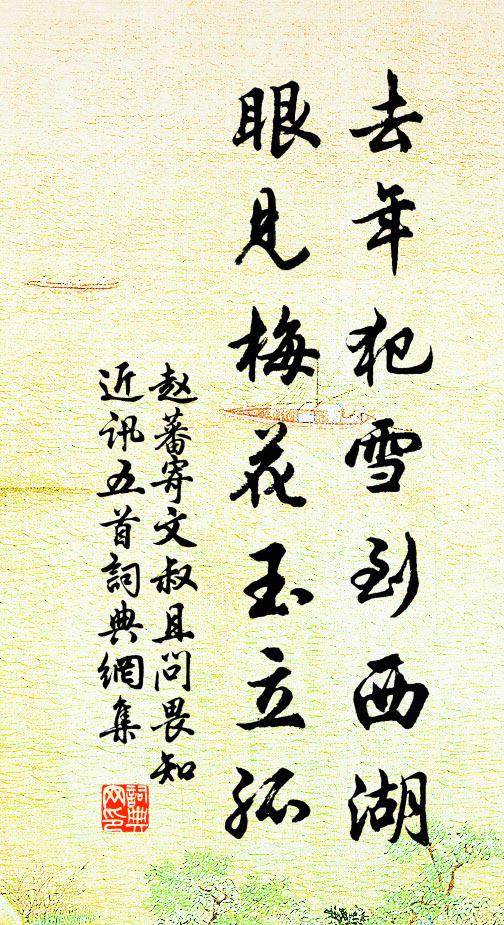 去年犯雪到西湖
眼見梅花玉立孤
赵蕃寄文叔且問畏知
近訊五首詞典網集
詞典网印